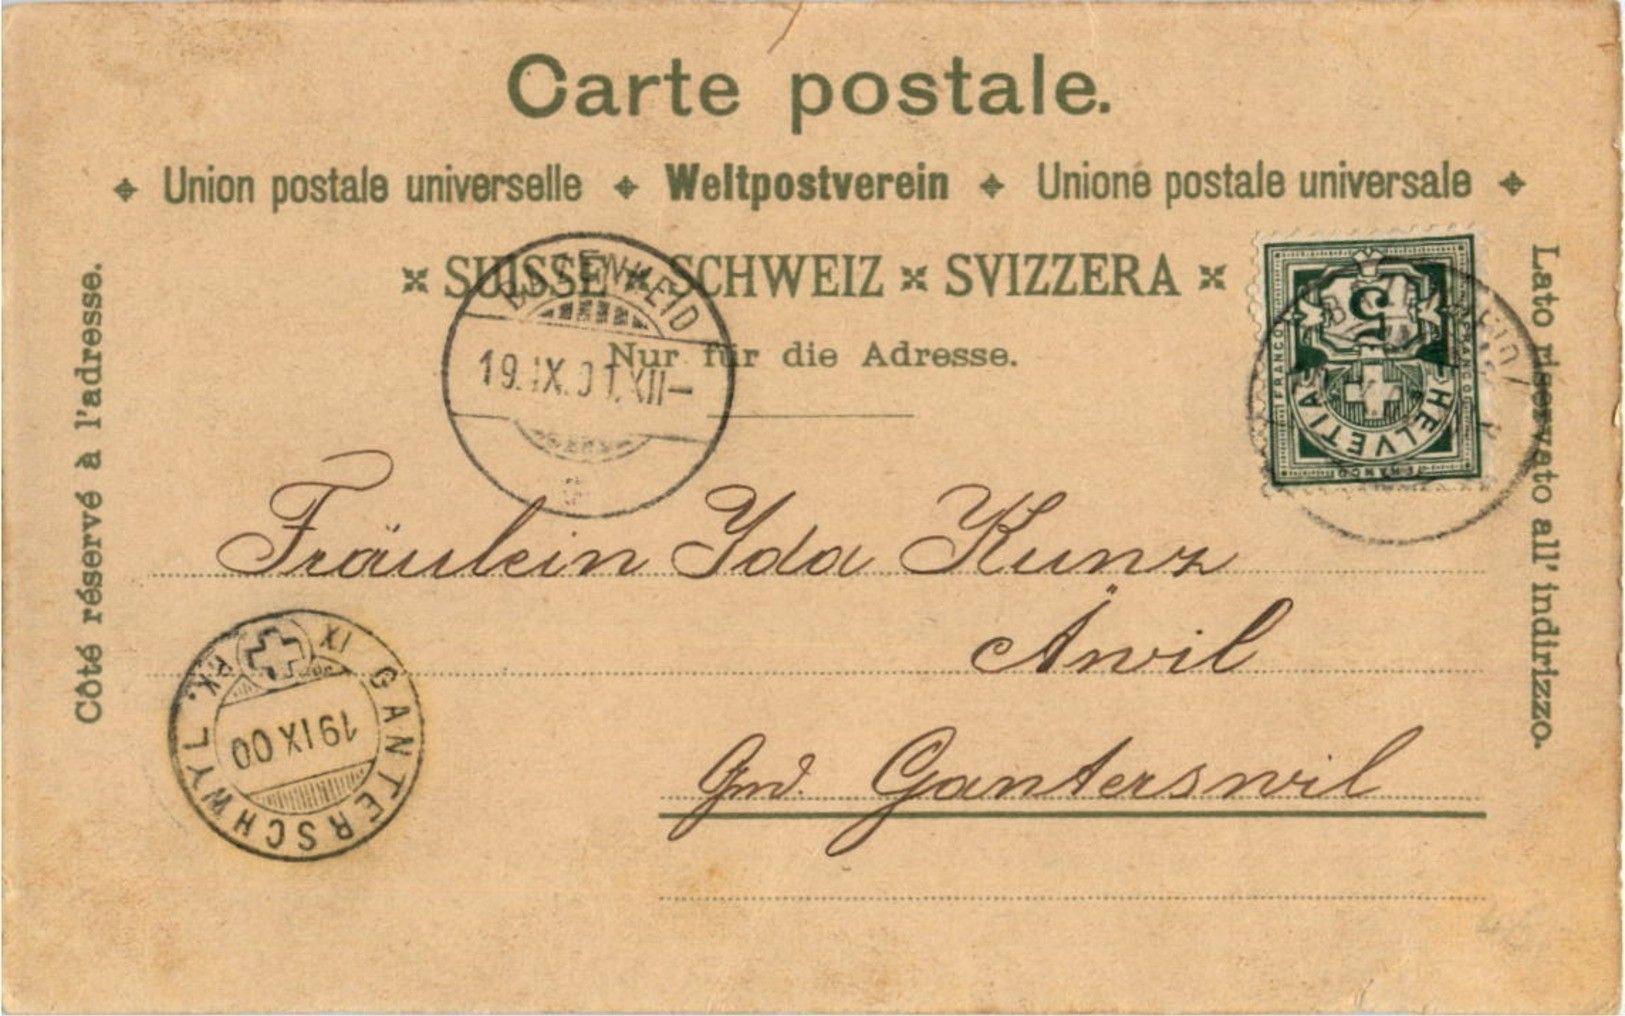 Carte postale.
Union postale universelle Weltpostverein Unione postale universale
SUISSE SCHWEIZ SVIZZERA
Nur für die Adresse.
Côté réservé à l'adresse.
Lato riservato all' indirizzo.
19.IX.01.XII–
5
FRANCO
FRANCO
HELVETIA
FRANCO
Fräulein Ida Kunz
Äwil
Gmd. Ganterswil
GANTERSCHWYL
19 IX 00
XI